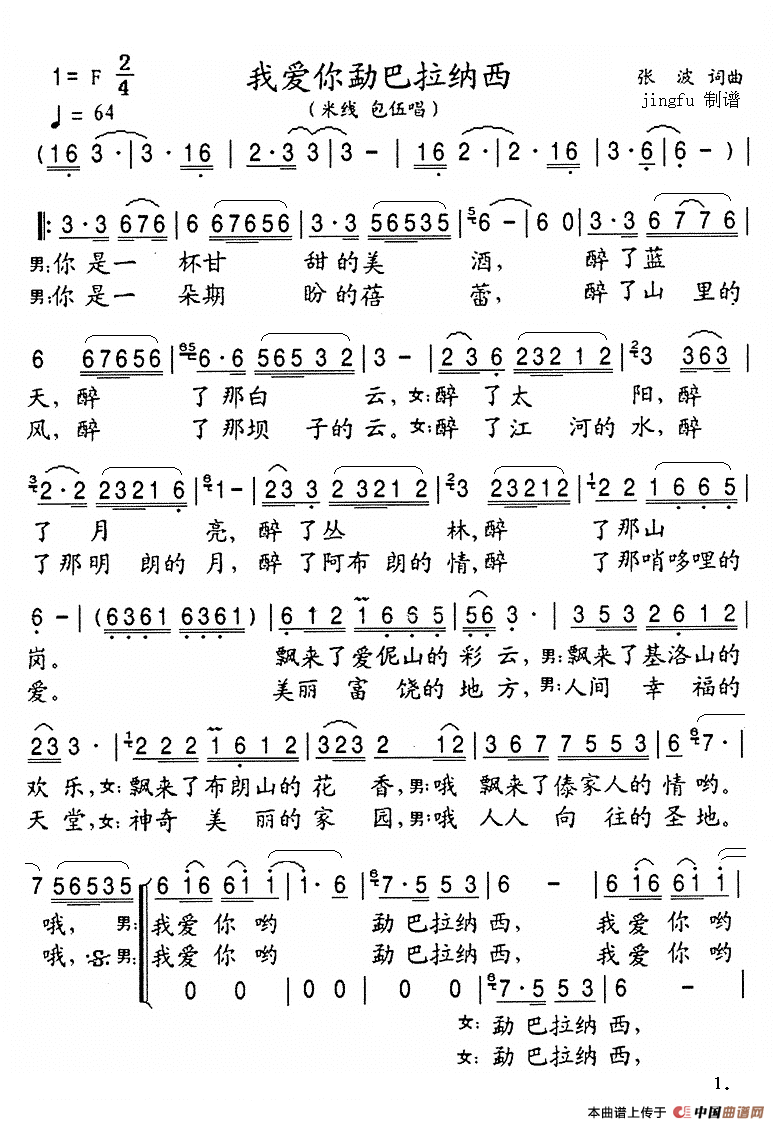 1= F 2/4 我爱你勐巴拉纳西 张 波 词曲
♩= 64 (米线 包伍唱) jingfu 制谱
(16 3·|3·16|2·33|3-|16 2·|2·16|3·6|6-)|
‖:3·3 676|6 67656|3·3 56535|6-|6 0|3·3 6776|
男:你是一 杯甘 甜的美 酒, 醉了蓝
男:你是一 朵期 盼的蓓 蕾, 醉了山 里的
6 67656|6·6 56532|3-|236 23212|3 363|
天,醉 了那白 云,女:醉 了太 阳,醉
风,醉 了那坝 子的云。女:醉 了江 河的水,醉
2·2 23216|1-|233 23212|3 23212|22 1665|
了月 亮,醉了丛 林,醉 了那山
了那明 朗的月,醉了阿布 朗的情,醉 了那哨哆哩的
6-|(6361 6361)|612 1665|56 3·|353 2612|
岗。 飘来了爱伲山的彩云,男:飘来了基洛山的
爱。 美丽富饶的地方,男:人间幸福的
23 3·|222 1612|323 2 12|367 7553|7·
欢乐,女:飘来了布朗山的花 香,男:哦 飘来了傣家人的情哟。
天堂,女:神奇美丽的家 园,男:哦 人人向往的圣地。
7 56535|6 16 61 1|1·6|7·5 53|6 -|6 16 61 1|
哦, 男:我爱你哟 勐巴拉纳西, 我爱你哟
哦, 男:我爱你哟 勐巴拉纳西, 我爱你哟
0 0|0 0|0 0|7·5 53|6 -|
女:勐巴拉纳西,
女:勐巴拉纳西,
1.
本曲谱上传于 中国曲谱网